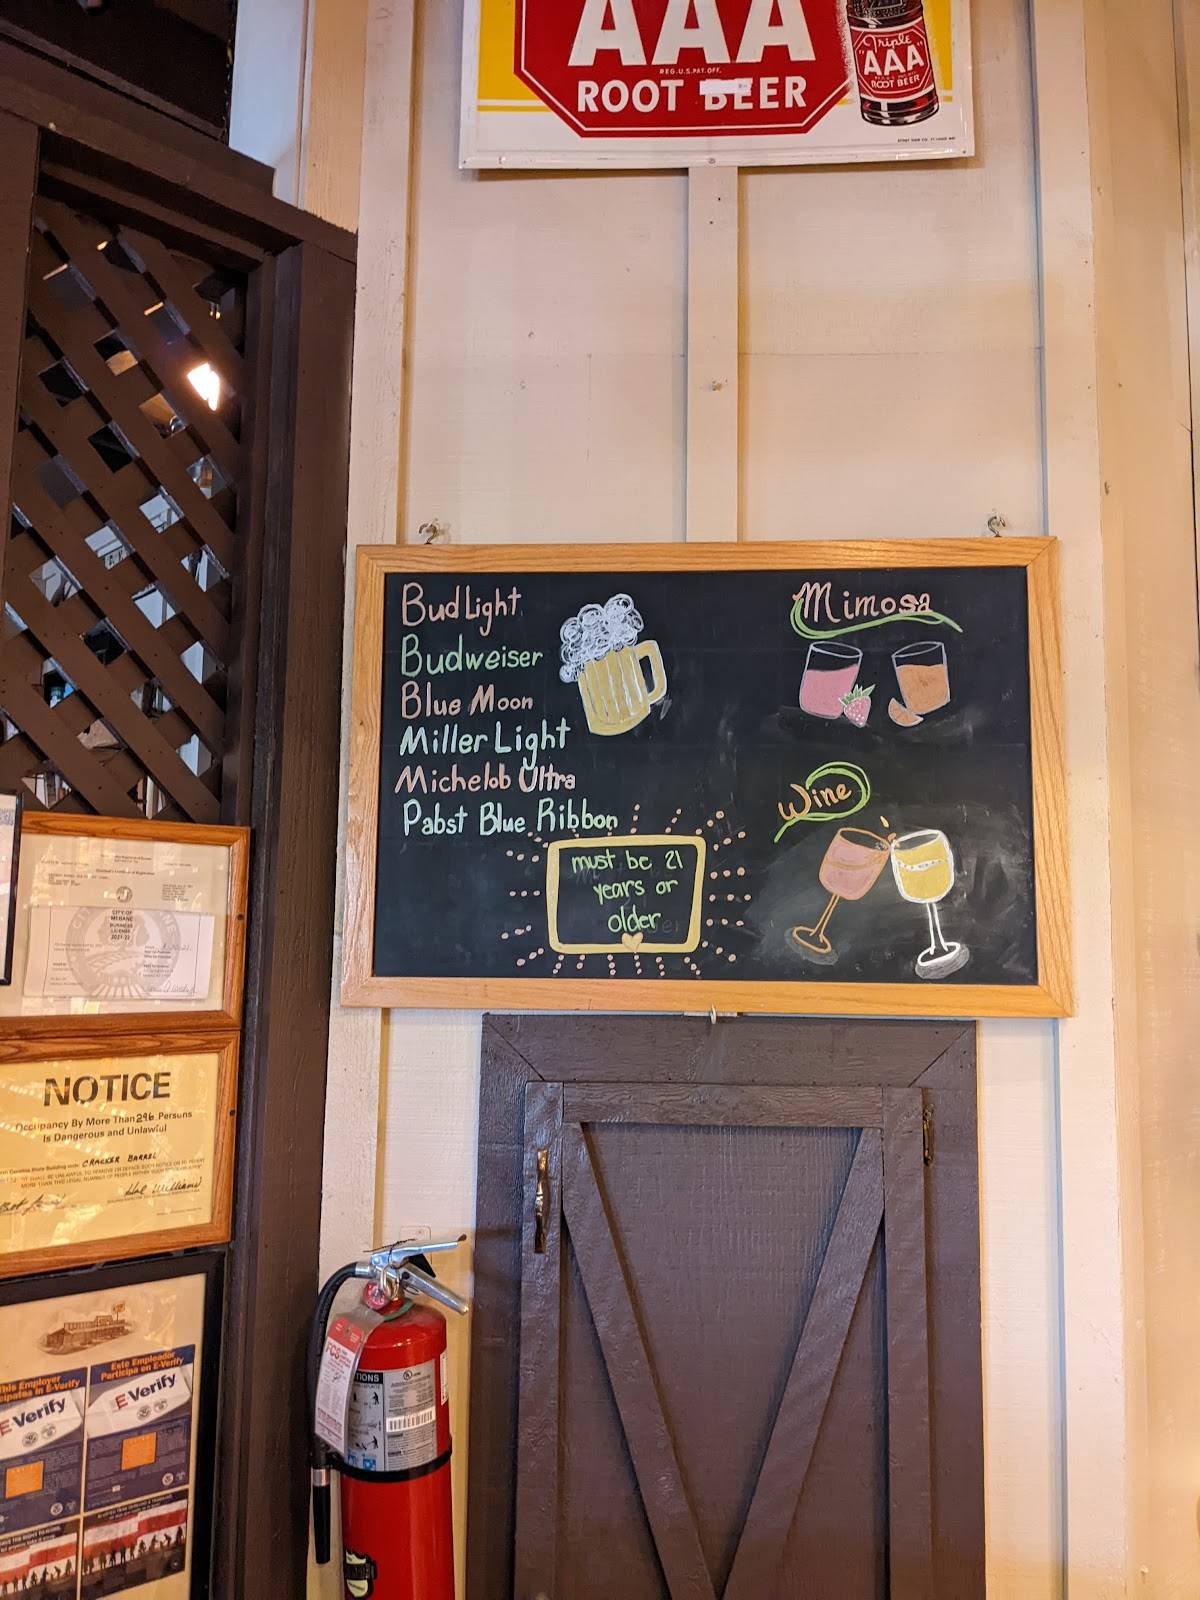 AAA
REG. U.S. PAT. OFF.
ROOT BEER
Triple
"AAA"
ROOT BEER
Bud Light
Budweiser
Blue Moon
Miller Light
Michelob Ultra
Pabst Blue Ribbon
must be 21
years or
older
Mimosa
Wine
CITY OF
MEBANE
BUSINESS
LICENSE
2021-22
NOTICE
Occupancy By More Than 296 Persons
Is Dangerous and Unlawful
CRACKER BARREL
This Employer
Participates in E-Verify
E Verify
Este Empleador
Participa en E-Verify
E Verify